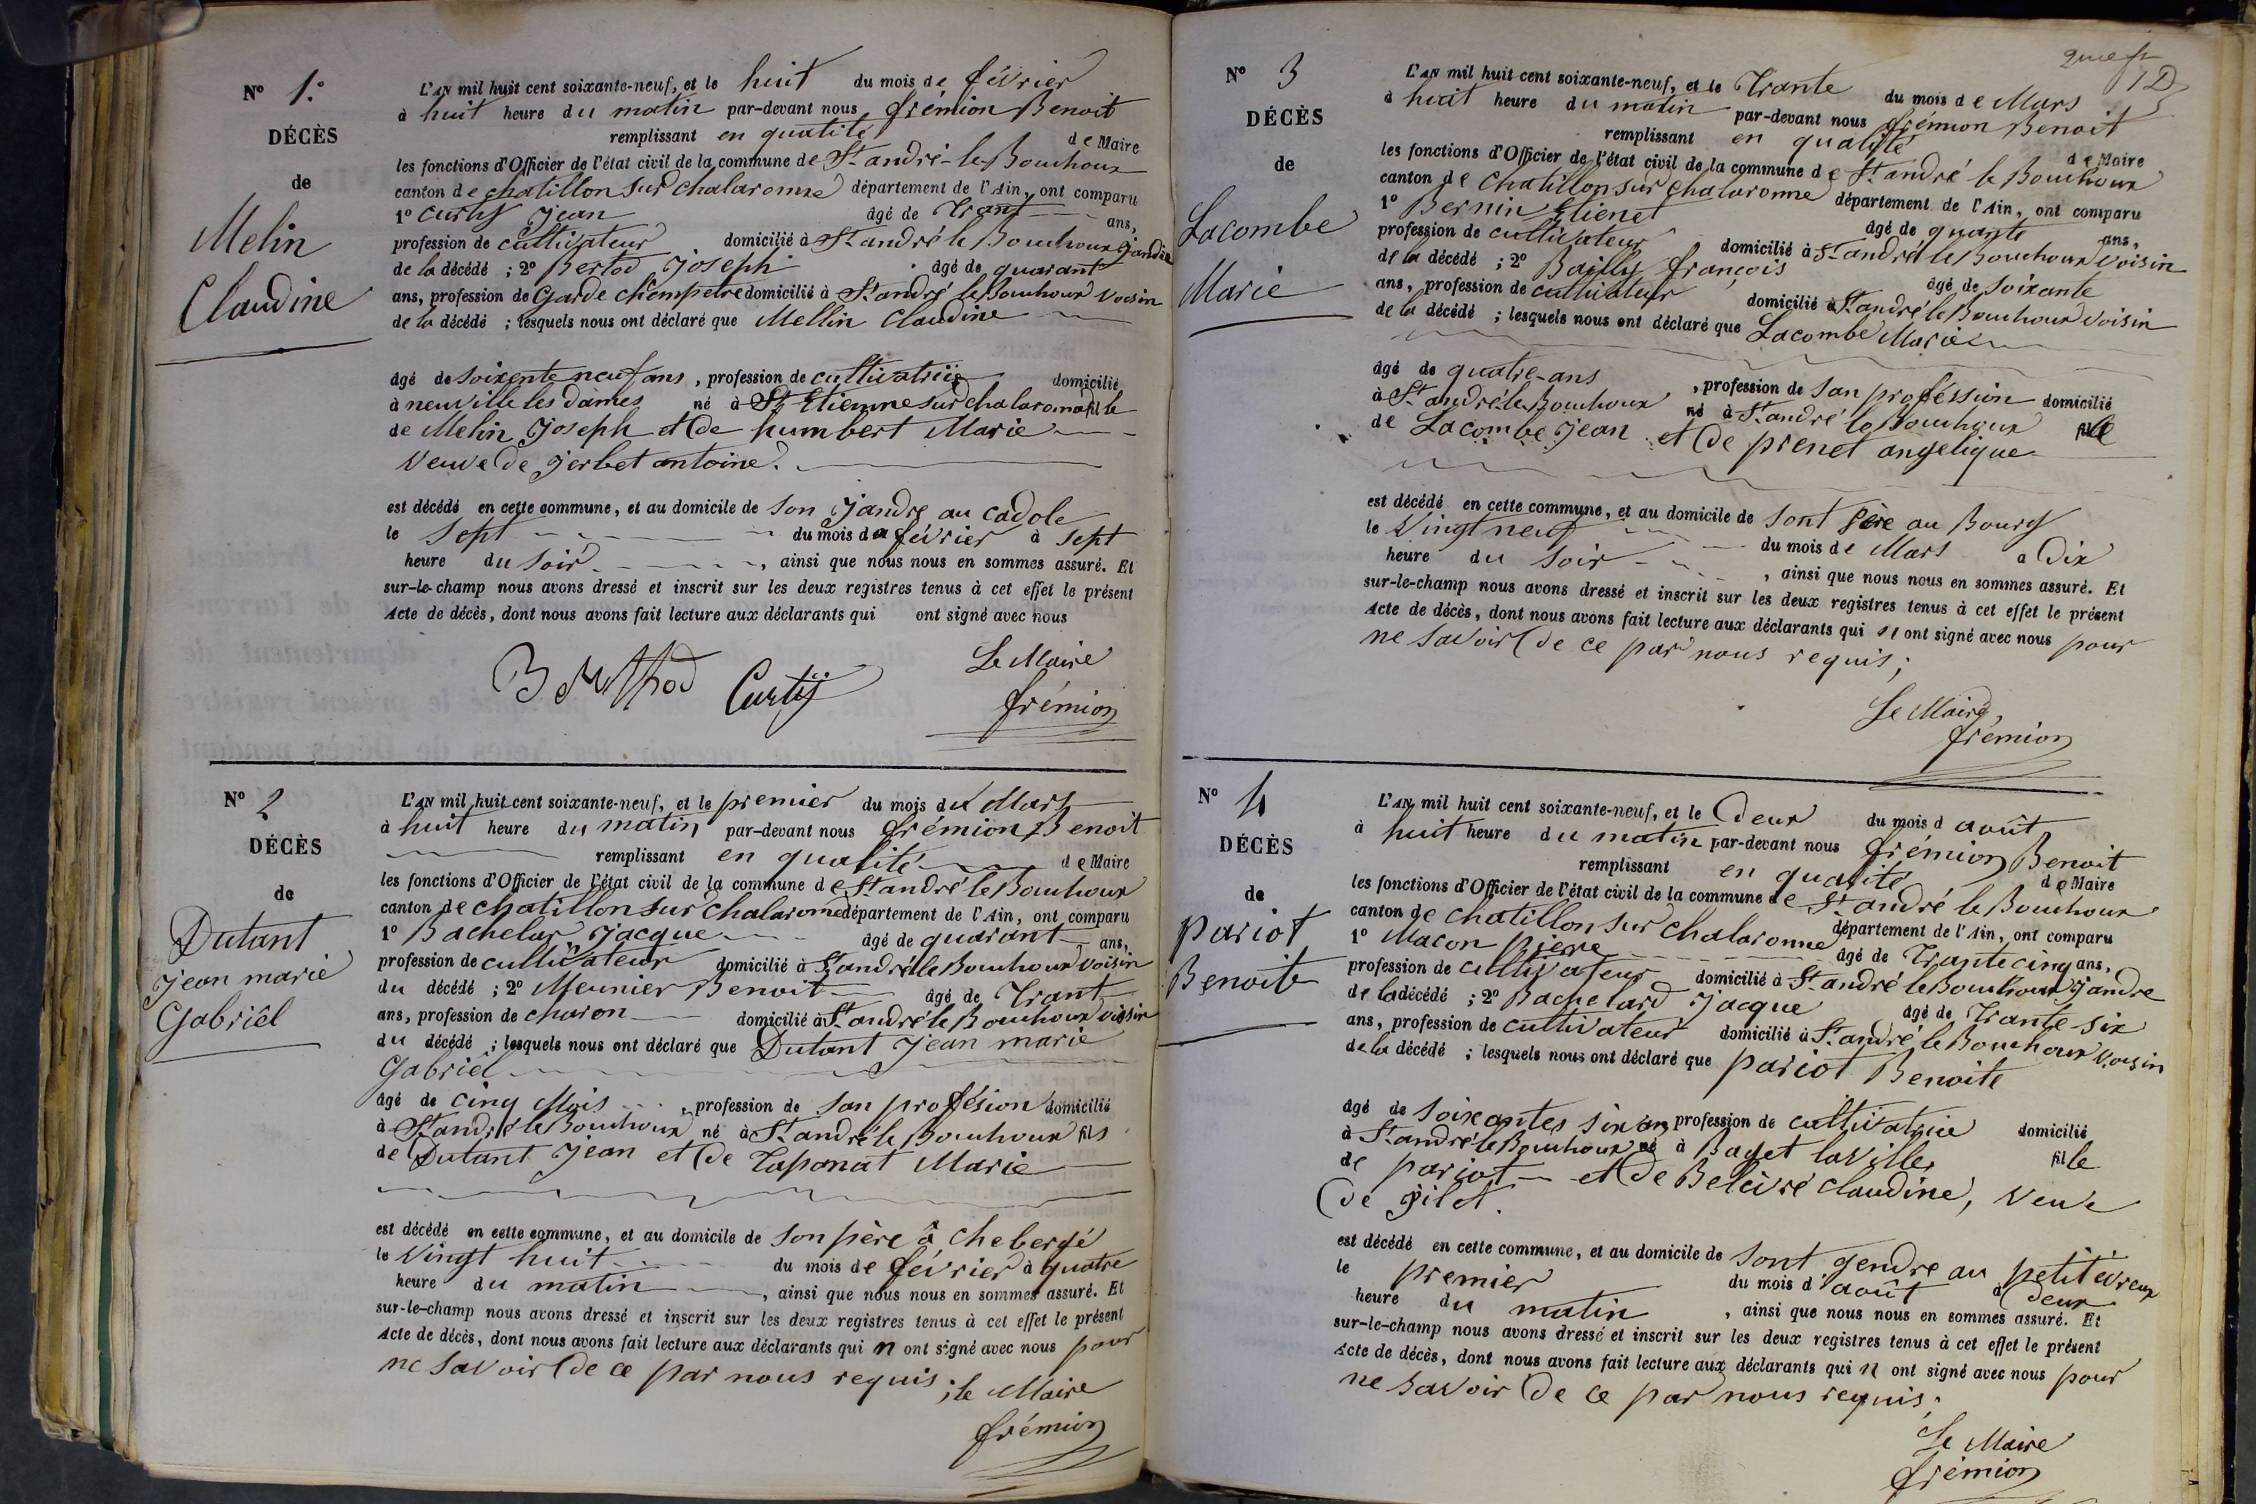 N° 1.°
DÉCÈS
de
Melin
Claudine
L'AN mil huit cent soixante-neuf, et le huit du mois de février
à huit heure du matin par-devant nous frémion Benoit
remplissant en qualité de Maire
les fonctions d'Officier de l'état civil de la commune de St andré-le Bouchoux
canton de chatillon sur chalaronne département de l'Ain, ont comparu
1° Curty Jean âgé de Trant ans,
profession de cultivateur domicilié à St andré le Bouchoux
de la décédé ; 2° Bertod Joseph âgé de quarant
ans, profession de Garde domicilié à St andré le Bouchoux voisin
de la décédé ; lesquels nous ont déclaré que Mellin Claudine
âgé de soixente neuf ans, profession de cultivatriie domicilié
à neuville les dames né à St Etienne sur chalaronne fille
de Melin Joseph et de humbert Marie
veuve de Jerbet antoine.
est décédé en cette commune, et au domicile de son Jandre au cadole
le sept du mois de février à sept
heure du soir, ainsi que nous nous en sommes assuré. Et
sur-le-champ nous avons dressé et inscrit sur les deux registres tenus à cet effet le présent
Acte de décès, dont nous avons fait lecture aux déclarants qui ont signé avec nous
Berthod Curty Le Maire
frémion
N° 2
DÉCÈS
de
Dutant
Jean marie
Gabriel
L'AN mil huit cent soixante-neuf, et le premier du mois de Mars
à huit heure du matin par-devant nous frémion Benoit
remplissant en qualité de Maire
les fonctions d'Officier de l'état civil de la commune de St andré le Bouchoux
canton de chatillon sur chalarone département de l'Ain, ont comparu
1° Bachelar Jacque âgé de quarant ans,
profession de cultivateur domicilié à St andré le Bouchoux voisin
du décédé ; 2° Meunier Benoit âgé de Trant
ans, profession de charon domicilié à St andré le Bouchoux voisin
du décédé ; lesquels nous ont déclaré que Dutant Jean marie
Gabriel
âgé de cinq Mois, profession de san profésion domicilié
à St andré le Bouchoux né à St andré le Bouchoux fils
de Dutant Jean et de Taponat Marie
est décédé en cette commune, et au domicile de son père à chebergé
le vingt huit du mois de février à quatre
heure du matin, ainsi que nous nous en sommes assuré. Et
sur-le-champ nous avons dressé et inscrit sur les deux registres tenus à cet effet le présent
Acte de décès, dont nous avons fait lecture aux déclarants qui n ont signé avec nous pour
ne savoir de ce par nous requis ; le Maire
frémion
N° 3
DÉCÈS
de
Lacombe
Marie
L'AN mil huit cent soixante-neuf, et le Trante du mois de Mars
à huit heure du matin par-devant nous frémion Benoit
remplissant en qualité de Maire
les fonctions d'Officier de l'état civil de la commune de St andré le Bouchoux
canton de chatillon sur chalaronne département de l'Ain, ont comparu
1° Bernin Etienet âgé de quarante ans,
profession de cultivateur domicilié à St andré le Bouchoux voisin
de la décédé ; 2° Bailly françois âgé de soixante
ans, profession de cultivateur domicilié à St andré le Bouchoux voisin
de la décédé ; lesquels nous ont déclaré que Lacombe Marie
âgé de quatre-ans, profession de san proféssion domicilié
à St andré le Bouchoux né à St andré le Bouchoux fille
de Lacombe Jean et de prenet angelique
est décédé en cette commune, et au domicile de sont père au Bourg
le vingt neuf du mois de Mars a dix
heure du soir, ainsi que nous nous en sommes assuré. Et
sur-le-champ nous avons dressé et inscrit sur les deux registres tenus à cet effet le présent
Acte de décès, dont nous avons fait lecture aux déclarants qui n ont signé avec nous pour
ne savoir de ce par nous requis ;
Le Maire,
frémion
N° 4
DÉCÈS
de
pariot
Benoite
L'AN mil huit cent soixante-neuf, et le deux du mois d août
à huit heure du matin par-devant nous frémion Benoit
remplissant en qualité de Maire
les fonctions d'Officier de l'état civil de la commune de St andré le Bouchoux
canton de châtillon sur chalaronne département de l'Ain, ont comparu
1° Macon pierre âgé de Trante cinq ans,
profession de cultivateur domicilié à St andré le Bouchoux Jandre
de la décédé ; 2° Bachelard Jacque âgé de Trante-six
ans, profession de cultivateur domicilié à St andré le Bouchoux voisin
de la décédé ; lesquels nous ont déclaré que pariot Benoite
âgé de soixantes six an profession de cultivatriie domicilié
à St andré le Bouchoux né à Baget la ville fille
de pariot et de Beleivre claudine, veuve
de pilot.
est décédé en cette commune, et au domicile de sont gendre au petit
le premier du mois d août à deux
heure du matin, ainsi que nous nous en sommes assuré. Et
sur-le-champ nous avons dressé et inscrit sur les deux registres tenus à cet effet le présent
Acte de décès, dont nous avons fait lecture aux déclarants qui n ont signé avec nous pour
ne savoir de ce par nous requis ;
Le Maire
frémion